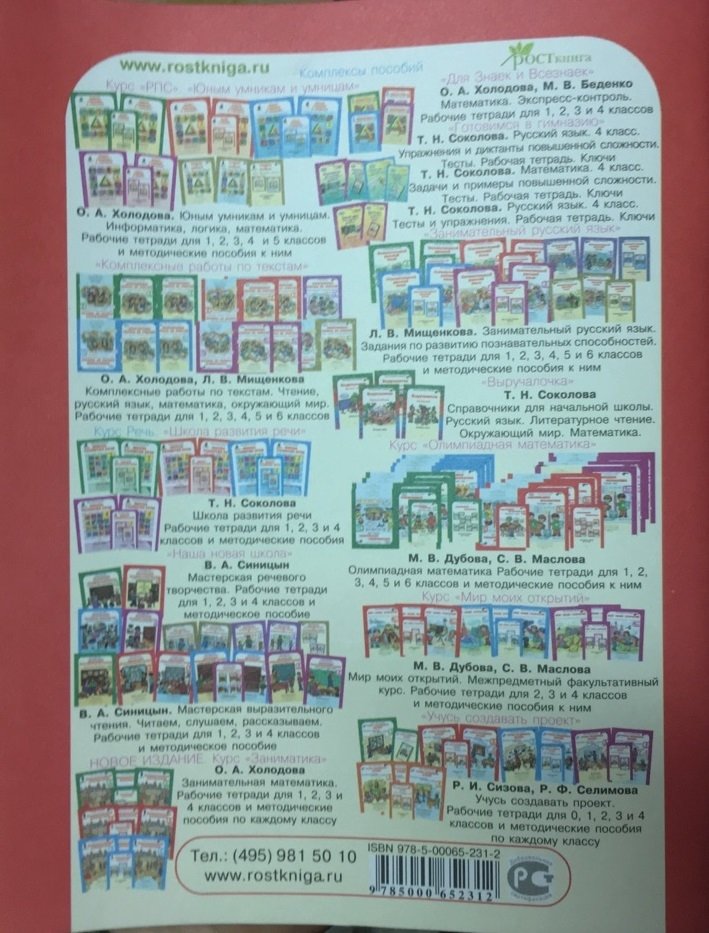 www.rostkniga.ru
Комплексы пособий
РОСТкнига
Курс «РПС». «Юным умникам и умницам»
О. А. Холодова. Юным умникам и умницам.
Информатика, логика, математика.
Рабочие тетради для 1, 2, 3, 4 и 5 классов
и методические пособия к ним
«Комплексные работы по текстам»
О. А. Холодова, Л. В. Мищенкова
Комплексные работы по текстам. Чтение,
русский язык, математика, окружающий мир.
Рабочие тетради для 1, 2, 3, 4, 5 и 6 классов
Курс Речь. «Школа развития речи»
Т. Н. Соколова
Школа развития речи
Рабочие тетради для 1, 2, 3 и 4
классов и методические пособия
«Наша новая школа»
В. А. Синицын
Мастерская речевого
творчества. Рабочие тетради
для 1, 2, 3 и 4 классов и
методическое пособие
В. А. Синицын. Мастерская выразительного
чтения. Читаем, слушаем, рассказываем.
Рабочие тетради для 1, 2, 3 и 4 классов
и методическое пособие
НОВОЕ ИЗДАНИЕ. Курс «Заниматика»
О. А. Холодова
Занимательная математика.
Рабочие тетради для 1, 2, 3 и
4 классов и методические
пособия по каждому классу
«Для Знаек и Всезнаек»
О. А. Холодова, М. В. Беденко
Математика. Экспресс-контроль.
Рабочие тетради для 1, 2, 3 и 4 классов
«Готовимся в гимназию»
Т. Н. Соколова. Русский язык. 4 класс.
Упражнения и диктанты повышенной сложности.
Тесты. Рабочая тетрадь. Ключи
Т. Н. Соколова. Математика. 4 класс.
Задачи и примеры повышенной сложности.
Тесты. Рабочая тетрадь. Ключи
Т. Н. Соколова. Русский язык. 4 класс.
Тесты и упражнения. Рабочая тетрадь. Ключи
«Занимательный русский язык»
Л. В. Мищенкова. Занимательный русский язык.
Задания по развитию познавательных способностей.
Рабочие тетради для 1, 2, 3, 4, 5 и 6 классов
и методические пособия к ним
«Выручалочка»
Т. Н. Соколова
Справочники для начальной школы.
Русский язык. Литературное чтение.
Окружающий мир. Математика.
Курс «Олимпиадная математика»
М. В. Дубова, С. В. Маслова
Олимпиадная математика Рабочие тетради для 1, 2,
3, 4, 5 и 6 классов и методические пособия к ним
Курс «Мир моих открытий»
М. В. Дубова, С. В. Маслова
Мир моих открытий. Межпредметный факультативный
курс. Рабочие тетради для 2, 3 и 4 классов
и методические пособия к ним
«Учусь создавать проект»
Р. И. Сизова, Р. Ф. Селимова
Учусь создавать проект.
Рабочие тетради для 0, 1, 2, 3 и 4
классов и методические пособия
по каждому классу
Тел.: (495) 981 50 10
www.rostkniga.ru
ISBN 978-5-00065-231-2
9 785000 652312